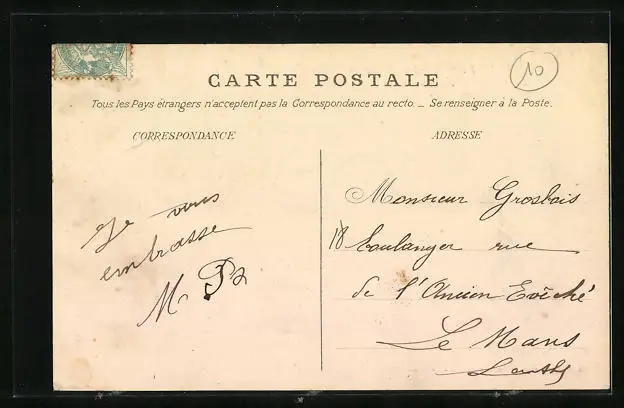 10
CARTE POSTALE
Tous les Pays étrangers n'acceptent pas la Correspondance au recto _ Se renseigner à la Poste.
CORRESPONDANCE
ADRESSE
Je vous
embrasse
Monsieur Grosbois
18 boulanger rue
de l'Ancien Evêché
Le Mans
Sarthe